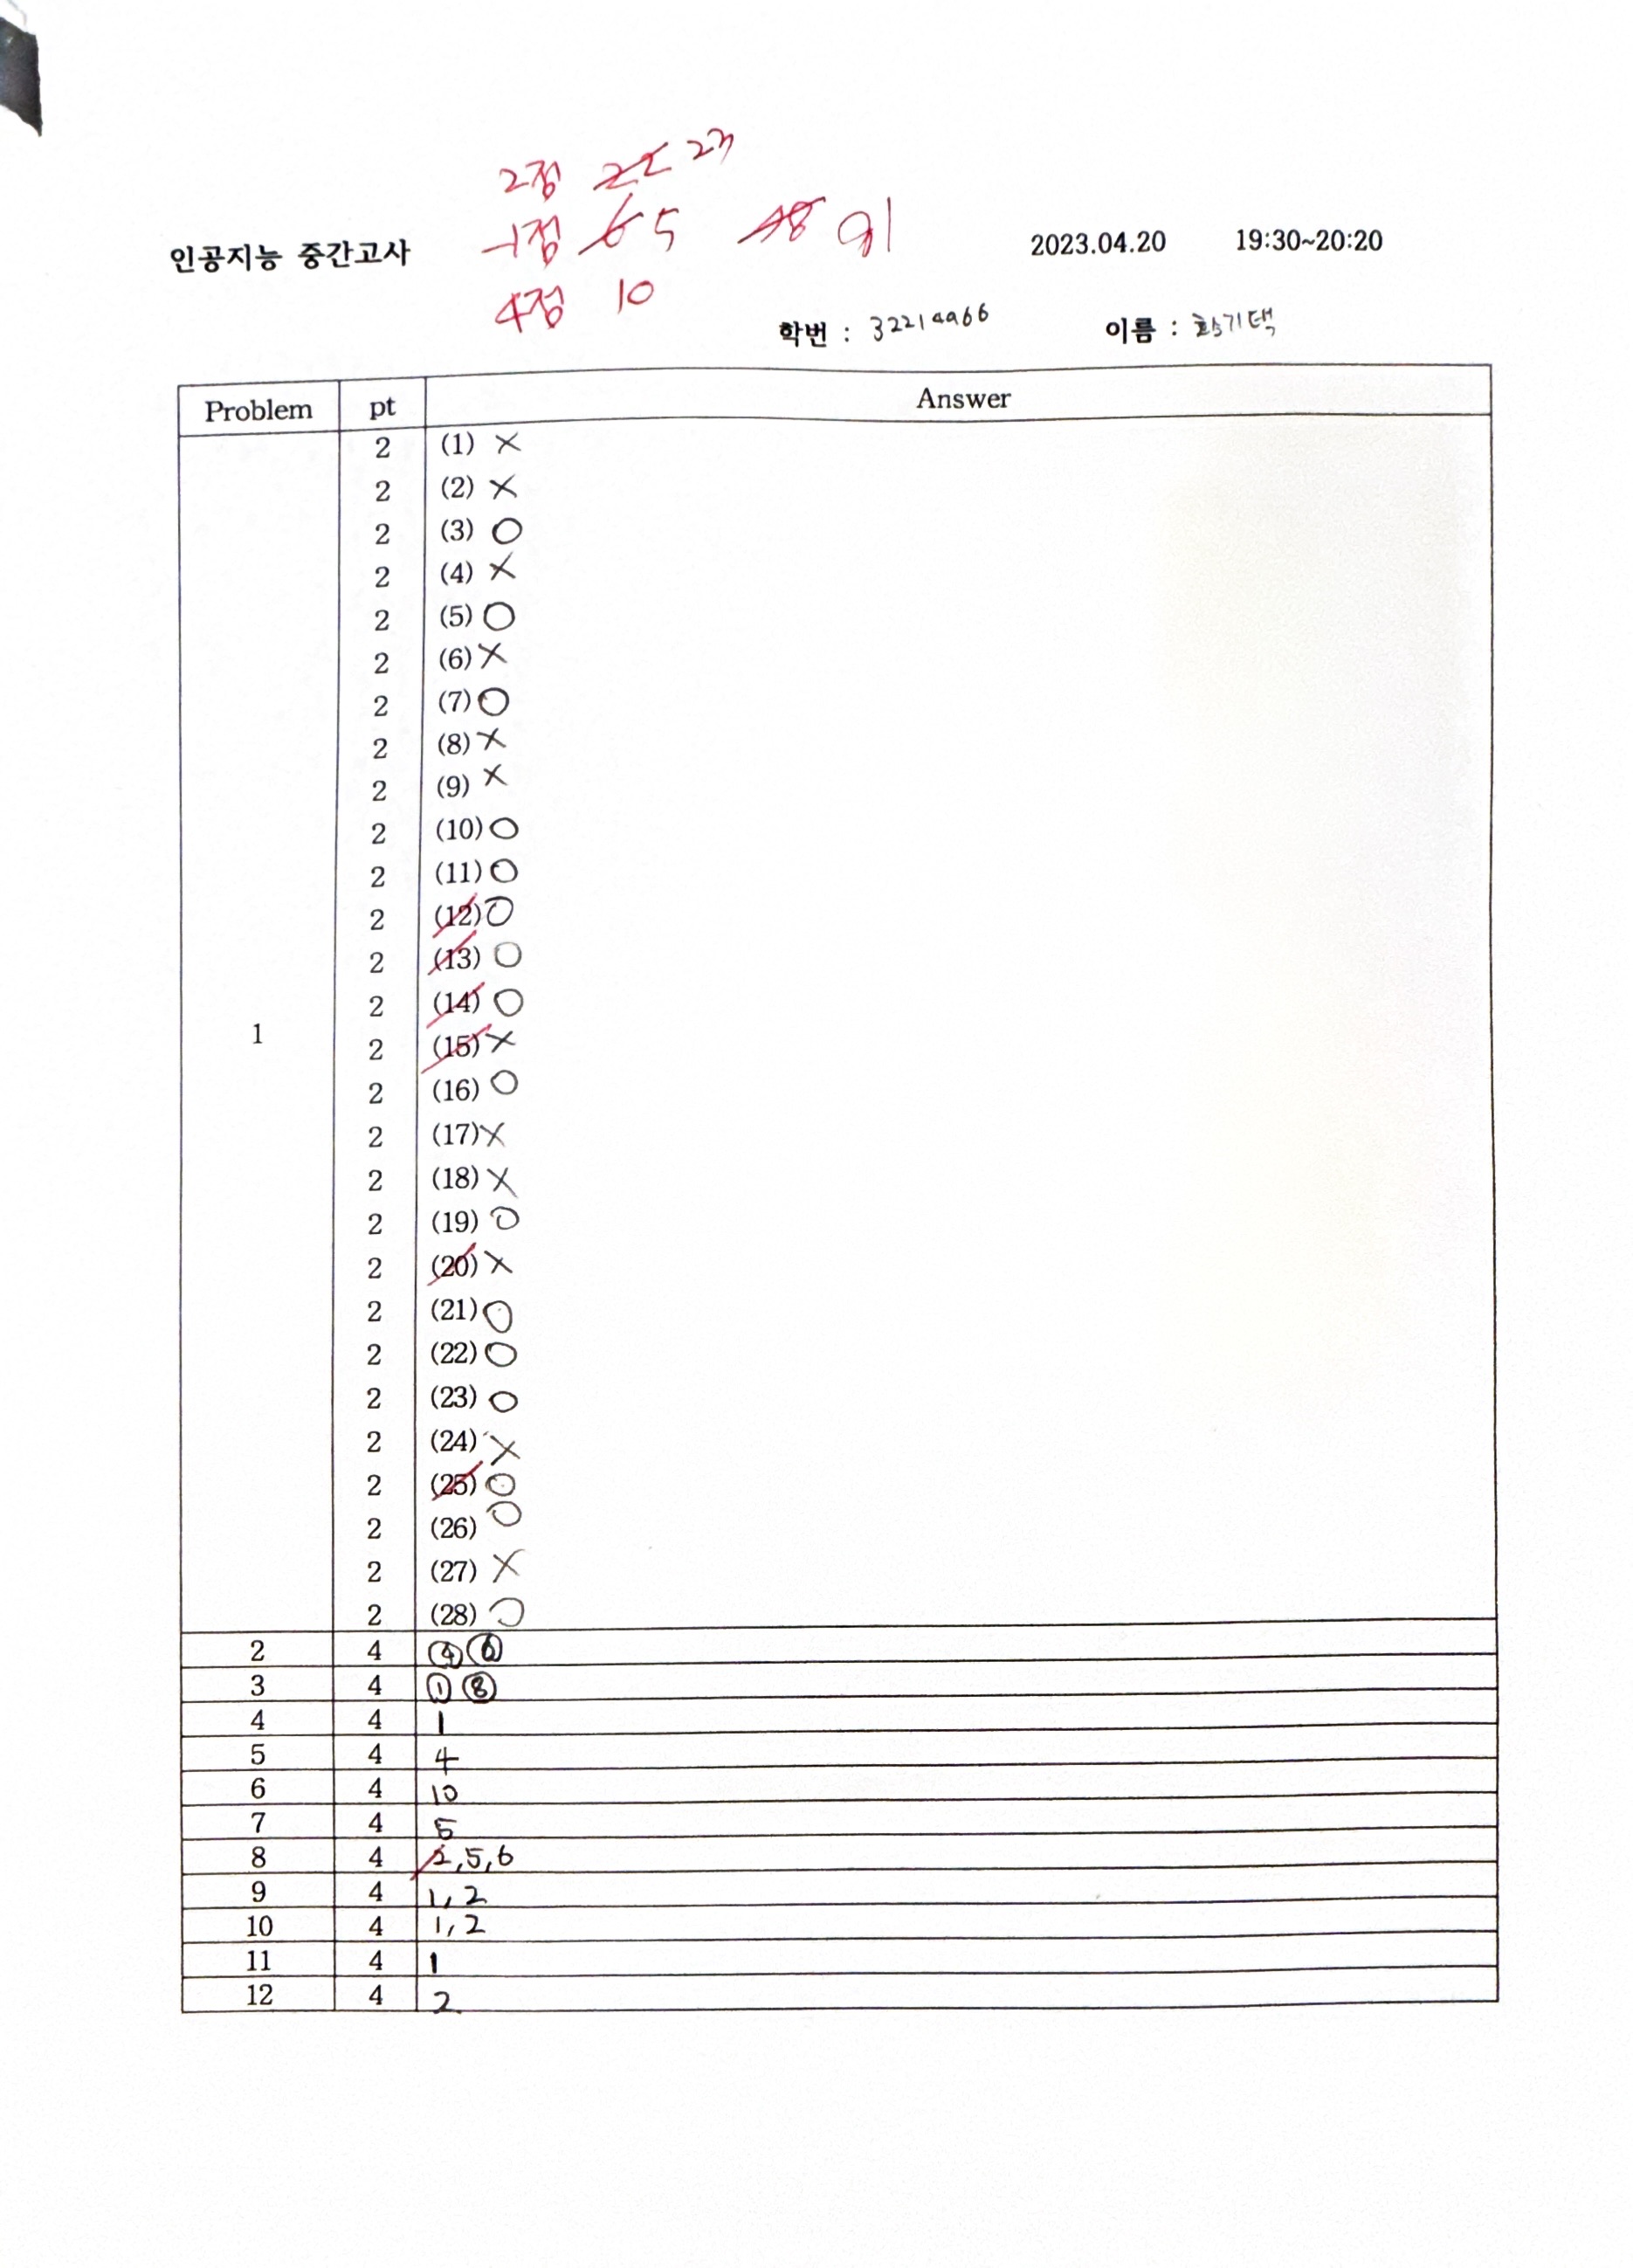 2점 22 23
-1점 6 5 48 91
4점 10
인공지능 중간고사 2023.04.20 19:30~20:20
학번 : 32214966 이름 : 황기택
Problem pt Answer
1
2 (1) X
2 (2) X
2 (3) O
2 (4) X
2 (5) O
2 (6) X
2 (7) O
2 (8) X
2 (9) X
2 (10) O
2 (11) O
2 (12) O
2 (13) O
2 (14) O
2 (15) X
2 (16) O
2 (17) X
2 (18) X
2 (19) O
2 (20) X
2 (21) O
2 (22) O
2 (23) O
2 (24) X
2 (25) O
2 (26) O
2 (27) X
2 (28) O
2 4 ④ ⑥
3 4 ① ⑧
4 4 1
5 4 4
6 4 10
7 4 5
8 4 2,5,6
9 4 1, 2
10 4 1, 2
11 4 1
12 4 2